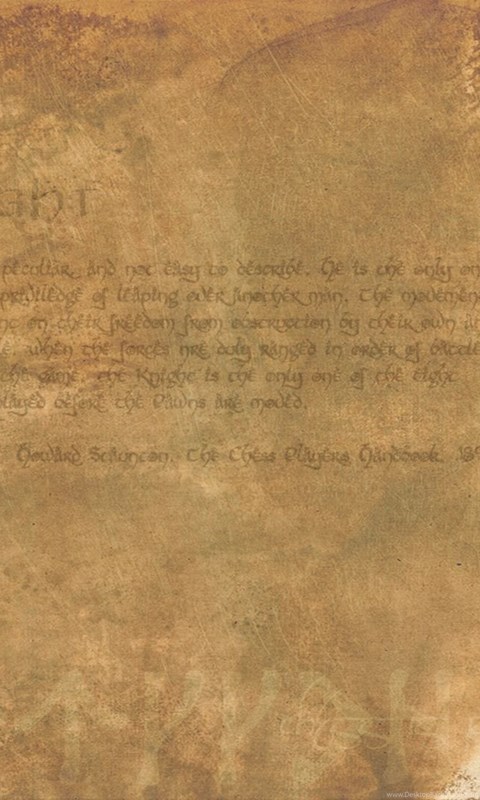 THE
peculiar, and not easy to describe. He is the only on
privilledge of leaping over another man. The movemen
nt on their freedom from obstruction by their own an
e, when the forces are duly ranged in order of battle
the game, the Knight is the only one of the eight
played before the Pawns are moved.
Howard Staunton. The Chess Players Handbook. 18